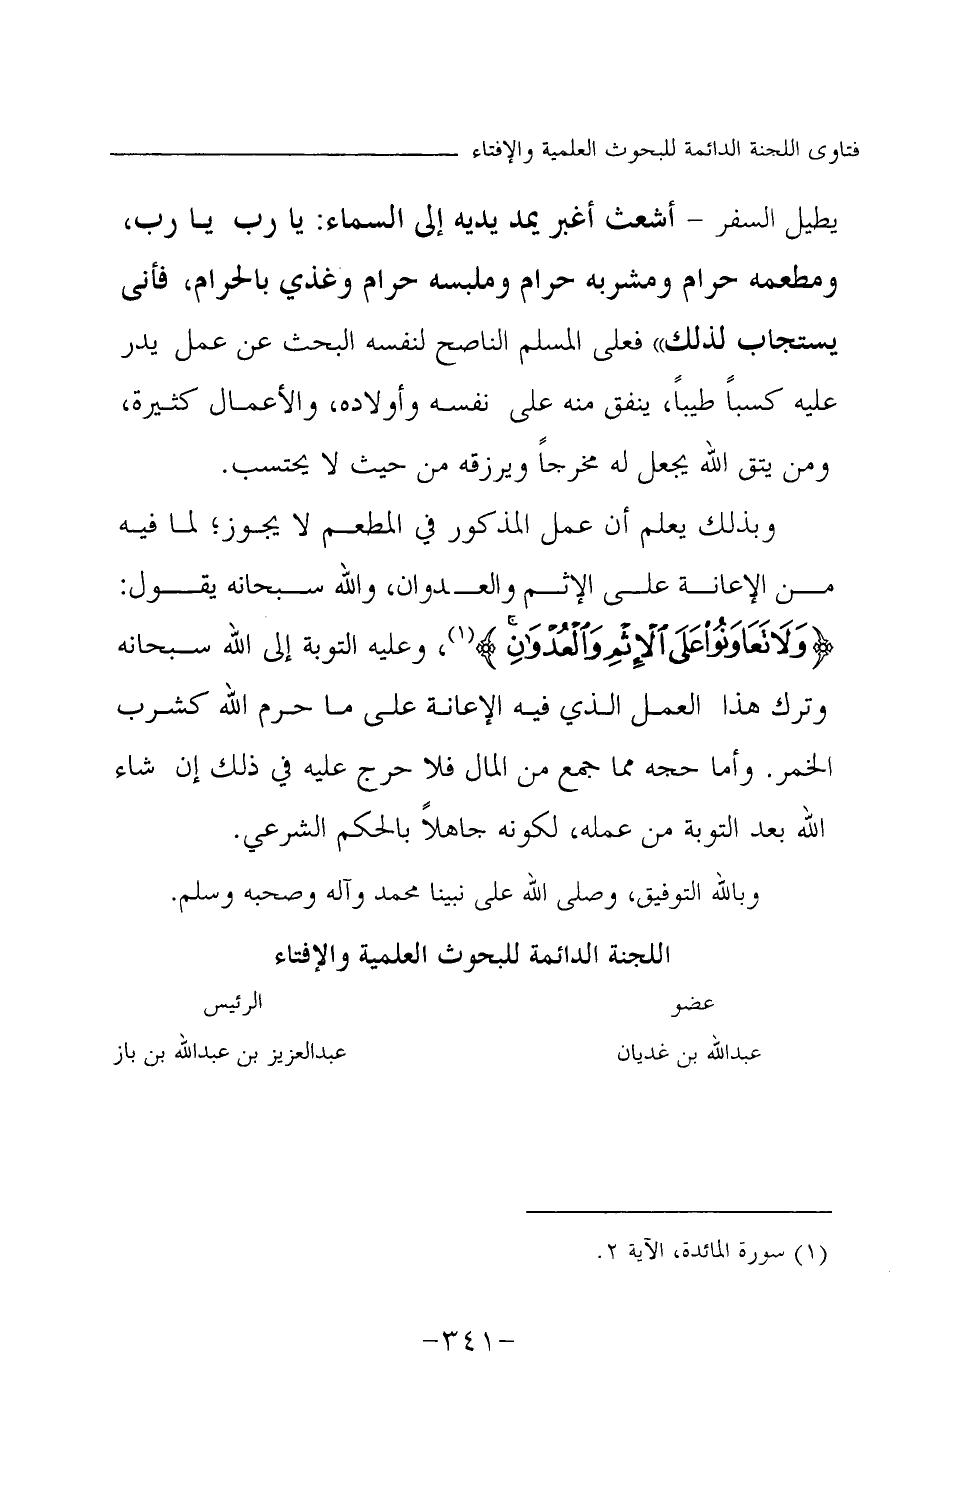 فتاوى اللجنة الدائمة للبحوث العلمية والإفتاء
يطيل السفر - أشعث أغبر يمد يديه إلى السماء: يا رب يا رب،
ومطعمه حرام ومشربه حرام وملبسه حرام وغذي بالحرام، فأنى
يستجاب لذلك» فعلى المسلم الناصح لنفسه البحث عن عمل يدر
عليه كسباً طيباً، ينفق منه على نفسه وأولاده، والأعمال كثيرة،
ومن يتق الله يجعل له مخرجاً ويرزقه من حيث لا يحتسب.
وبذلك يعلم أن عمل المذكور في المطعم لا يجوز؛ لما فيه
من الإعانة على الإثم والعدوان، والله سبحانه يقول:
﴿وَلَا تَعَاوَنُوا عَلَى الْإِثْمِ وَالْعُدْوَانِ ۚ﴾(١)، وعليه التوبة إلى الله سبحانه
وترك هذا العمل الذي فيه الإعانة على ما حرم الله كشرب
الخمر. وأما حجه مما جمع من المال فلا حرج عليه في ذلك إن شاء
الله بعد التوبة من عمله، لكونه جاهلاً بالحكم الشرعي.
وبالله التوفيق، وصلى الله على نبينا محمد وآله وصحبه وسلم.
اللجنة الدائمة للبحوث العلمية والإفتاء
عضو الرئيس
عبدالله بن غديان عبدالعزيز بن عبدالله بن باز
(١) سورة المائدة، الآية ٢.
-٣٤١-